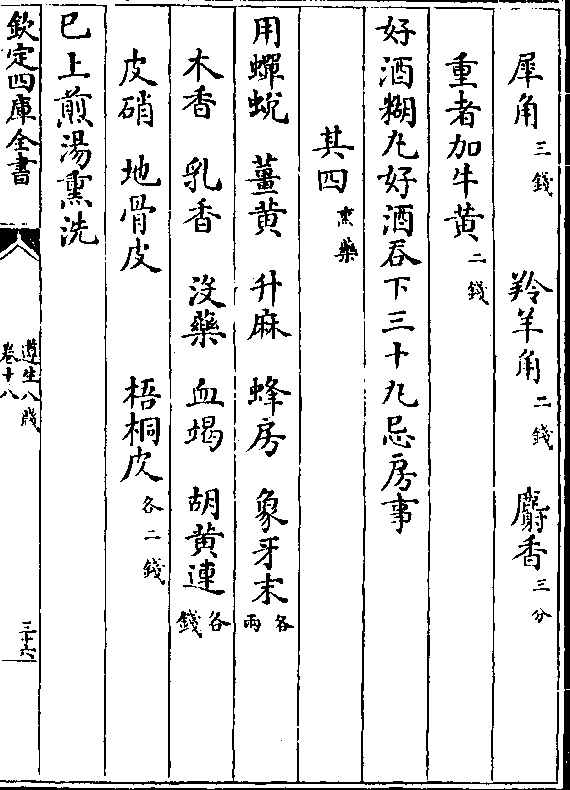 犀角三錢 羚羊角二錢 麝香三分
重者加牛黄二錢
好酒糊丸好酒吞下三十丸忌房事
其四熏藥
用蟬蛻 薑黄 升麻 蜂房 象牙末各兩
木香 乳香 没藥 血竭 胡黄連各錢
皮硝 地骨皮 梧桐皮各二錢
已上煎湯熏洗
欽定四庫全書
遵生八牋
卷十八
三十六